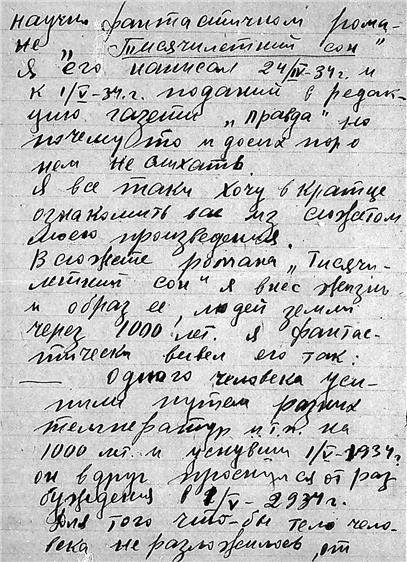 научно фантастичном рома-
не „Тисячилетний сон"
Я его написал 24/IV-34г. и
к 1/V-34.г. поданий в редак-
цию газети „правда" но
почемуто и до сих пор о
нем не слихать.
Я все таки хочу в кратце
ознакомить вас из сюжетом
моего произведения.
В сюжете романа „Тисячи-
летний сон" я внес жизнь
и образ ее, людей земли
через 1000 лет. Я фантас-
тически вивел его так:
— Одного человека уси-
пили путем разних
температур и.т.п. на
1000 лт. и уснувши 1/V-1934г.
он вдруг проснулся от раз
буждения в 1/V-2934г.
Для того что-бы тело чело-
века не разложилось, от